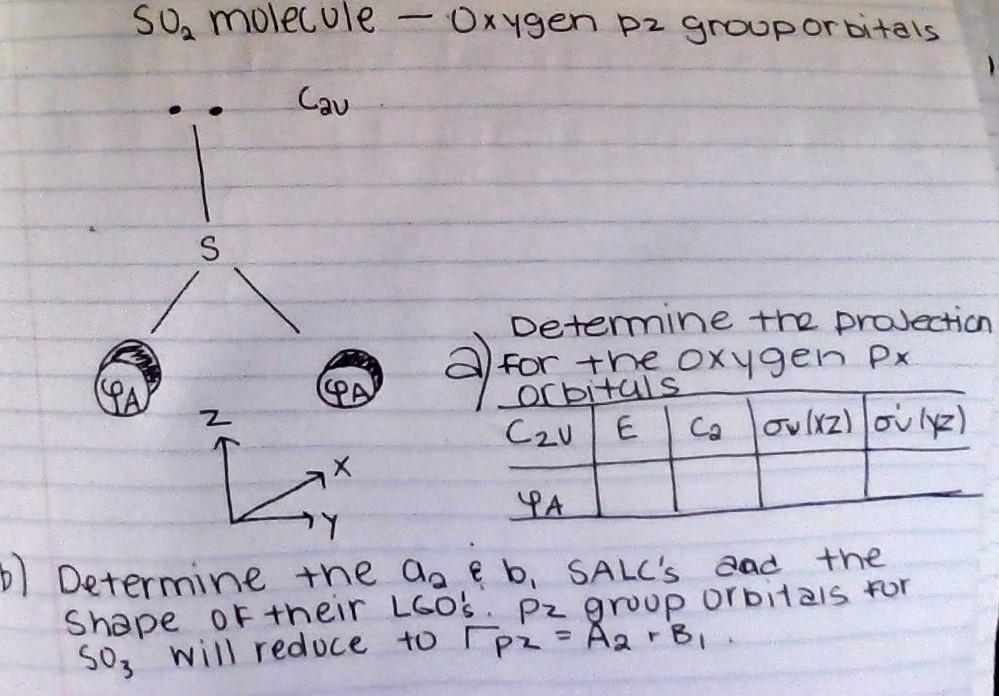 SO₂ molecule – Oxygen pz group orbitals
C2v
S
φA
φA
Z
X
Y
a) Determine the projection
for the oxygen Px
orbitals
C2v E C2 σv(xz) σv'(yz)
φA
b) Determine the a2 & b1 SALC's and the
shape of their LGO's. pz group orbitals for
SO3 will reduce to Γpz = A2 + B1.